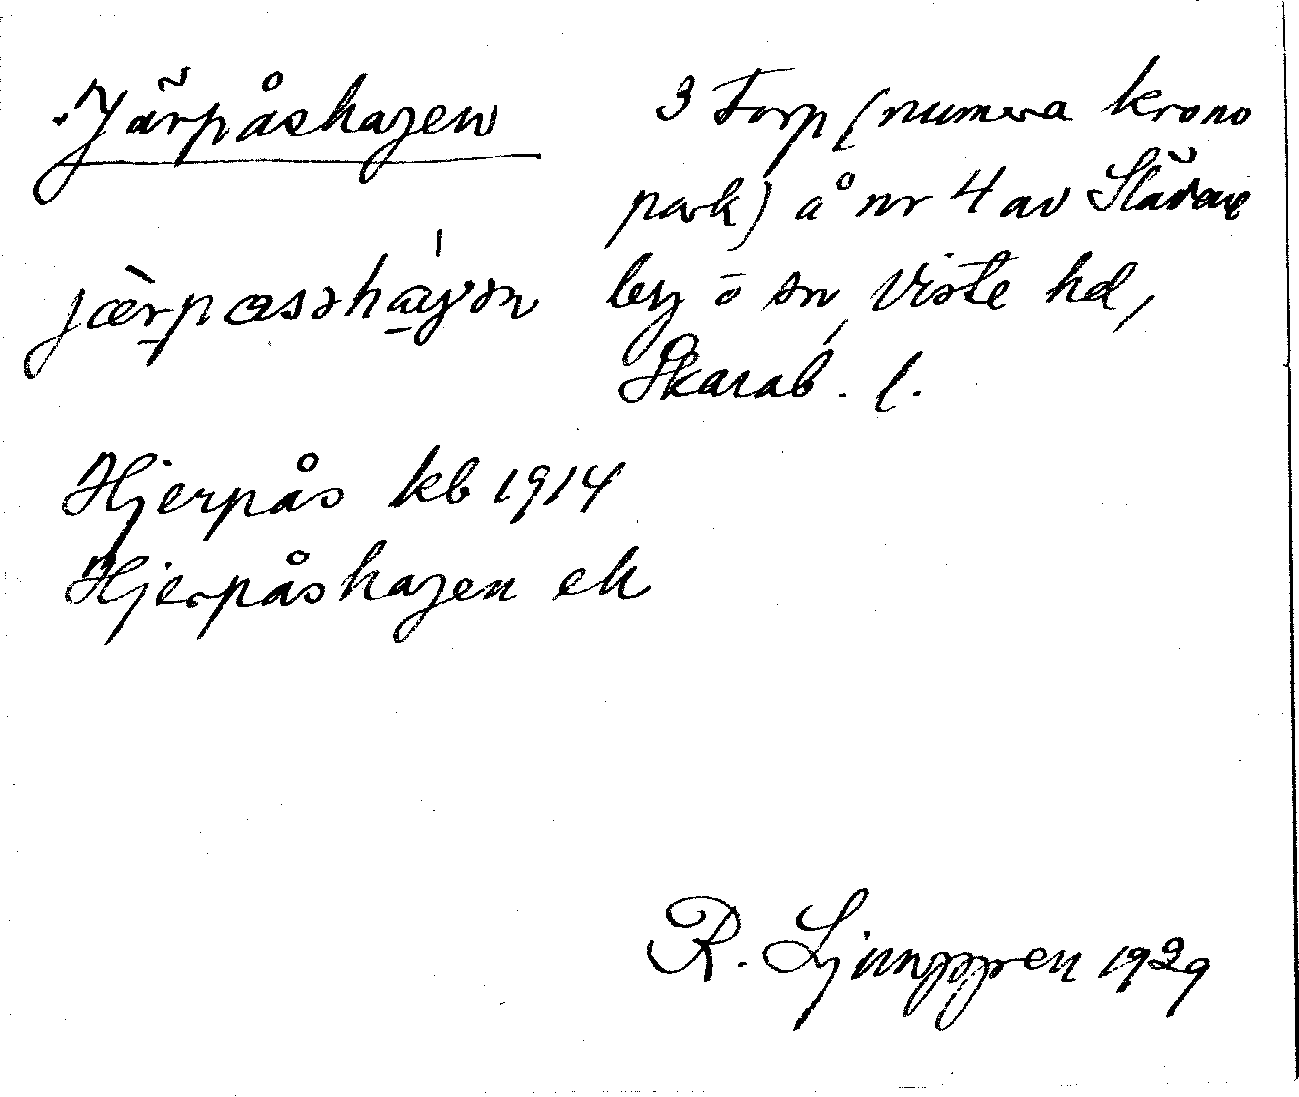 Järpåshagen
jærpæsəhaɣən
Hjerpås kb 1914
Hjerpåshagen ek
3 Torp (numera krono
park) å nr 4 av Slädene
by ō sn, Viste hd,
Skarab. l.
R. Ljunggren 1929